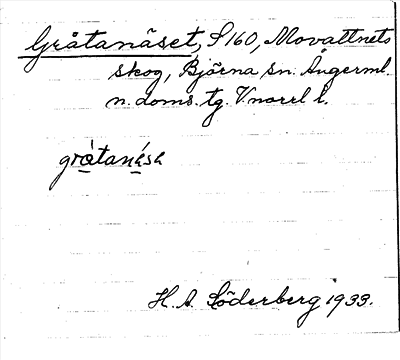 Gråtanäset, S 160, Movattnets
skog, Björna sn. Ångerml.
n. doms. tg. V.norrl l.
gråtanésɛ
H. A. Söderberg 1933.